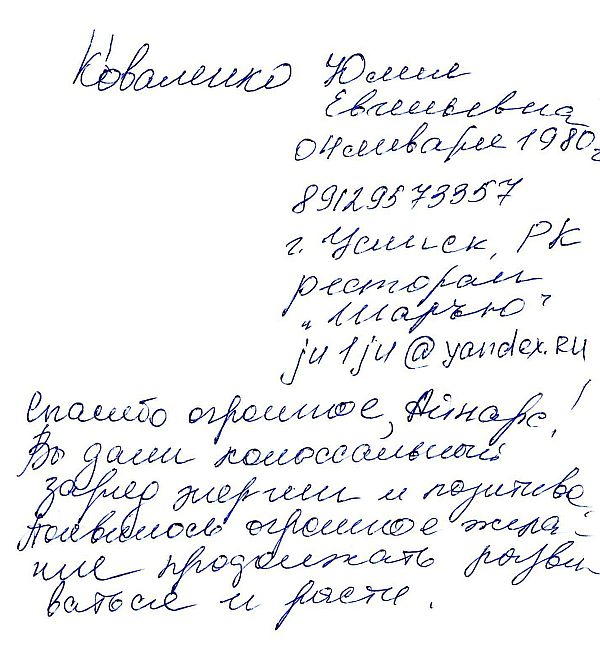 Коваленко Юлия
Евгеньевна
04 января 1980г
89129573357
г. Усинск, РК
ресторан
"Шаръю"
ju1ju@yandex.ru
Спасибо огромное, Айнарс!
Вы дали колоссальный
заряд энергии и позитива.
Появилось огромное жела-
ние продолжать разви-
ваться и расти.